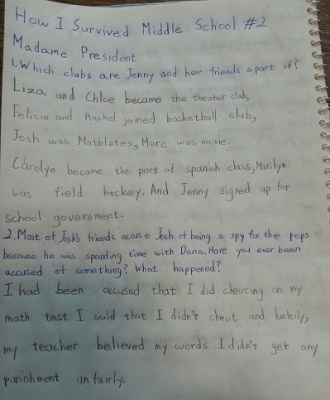 How I Survived Middle School #2
Madame President
1. Which clubs are Jenny and her friends a part of?
Liza and Chloe became the theater club,
Felicia and Rachel joined basketball club,
Josh was Mathletes, Marc was movie.
Carolyn became the part of spanish class, Marilyn
was field hockey. And Jenny signed up for
school government.
2. Most of Josh's friends acuse Josh of being a spy for the pops
because he was spending time with Dana. Have you ever been
accused of something? What happened?
I had been accused that I did cheating on my
math test I said that I didn't cheat and luckily,
my teacher believed my words I didn't get any
punishment unfairly.